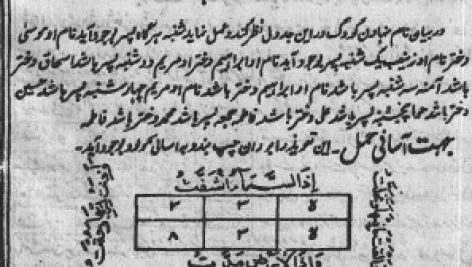 در بیان نام نهادن کودک و در این جدول نظر کند و عمل نماید شنبه هرگاه پسر بوجود آید نام او موسی
دختر نام او زینب یک شنبه پسر بوجود آید نام او ابراهیم دختر او مریم دوشنبه پسر باشد اسحاق دختر
باشد آمنه سه شنبه پسر باشد نام او ابراهیم دختر باشد نام او مریم چهارشنبه پسر باشد حسین
دختر باشد پنجشنبه پسر باشد علی دختر باشد فاطمه جمعه پسر باشد محمد دختر باشد فاطمه
جهت آسانی حمل۔ این تعویذ را بر ران چپ بندد به آسانی مولود بوجود آید۔
إِذَا السَّمَاءُ انْشَقَّتْ
۲ ۳ لا
۸ ۳ لا
وَإِذَا الْأَرْضُ مُدَّتْ